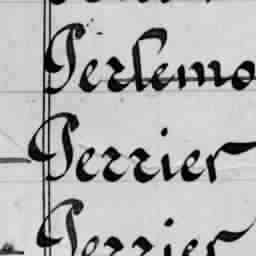 Perlemo
Perrier
Perrier